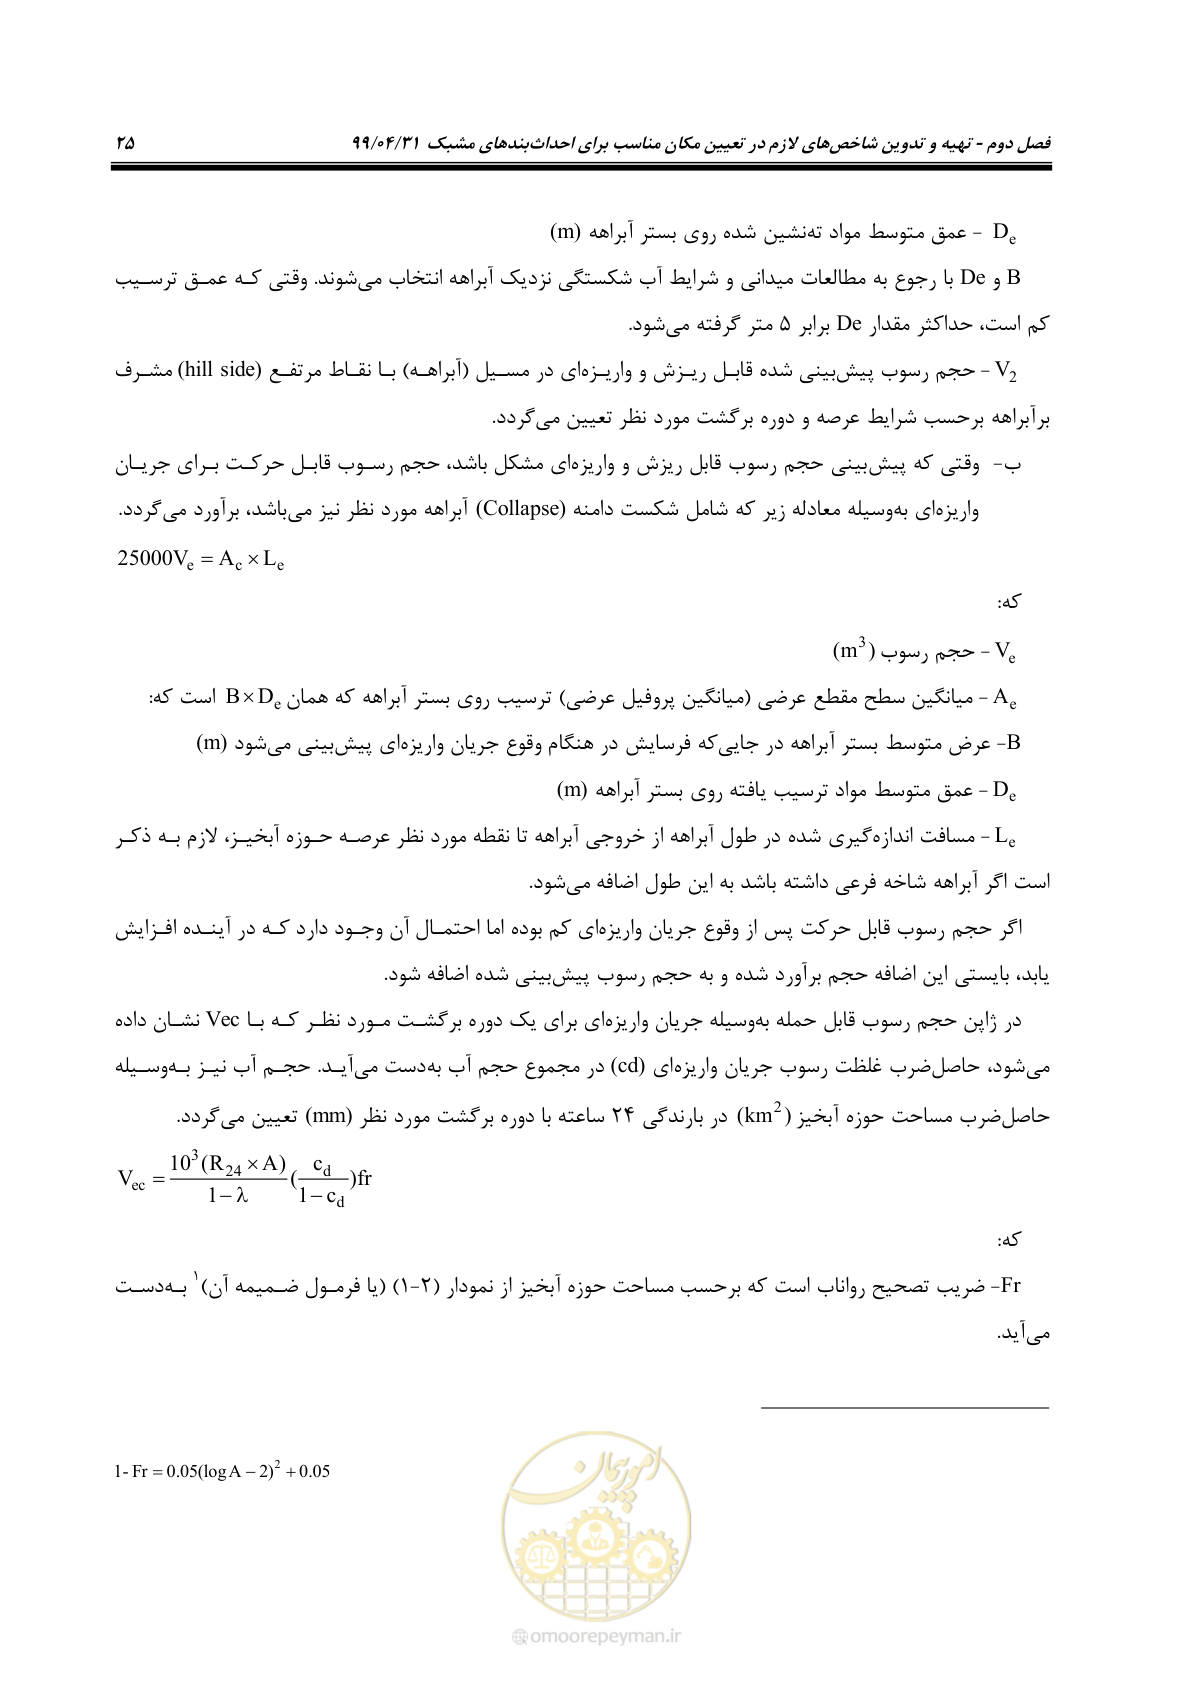 فصل دوم - تهیه و تدوین شاخص‌های لازم در تعیین مکان مناسب برای احداث‌بندهای مشبک ۹۹/۰۴/۳۱ ۲۵
Dₑ - عمق متوسط مواد ته‌نشین شده روی بستر آبراهه (m)
B و De با رجوع به مطالعات میدانی و شرایط آب شکستگی نزدیک آبراهه انتخاب می‌شوند. وقتی که عمق ترسیب
کم است، حداکثر مقدار De برابر ۵ متر گرفته می‌شود.
V₂ - حجم رسوب پیش‌بینی شده قابل ریزش و واریزه‌ای در مسیل (آبراهه) با نقاط مرتفع (hill side) مشرف
برآبراهه برحسب شرایط عرصه و دوره برگشت مورد نظر تعیین می‌گردد.
ب- وقتی که پیش‌بینی حجم رسوب قابل ریزش و واریزه‌ای مشکل باشد، حجم رسوب قابل حرکت برای جریان
واریزه‌ای به‌وسیله معادله زیر که شامل شکست دامنه (Collapse) آبراهه مورد نظر نیز می‌باشد، برآورد می‌گردد.
25000Vₑ = A_c × Lₑ
که:
Vₑ - حجم رسوب (m³)
Aₑ - میانگین سطح مقطع عرضی (میانگین پروفیل عرضی) ترسیب روی بستر آبراهه که همان B×Dₑ است که:
B- عرض متوسط بستر آبراهه در جایی‌که فرسایش در هنگام وقوع جریان واریزه‌ای پیش‌بینی می‌شود (m)
Dₑ - عمق متوسط مواد ترسیب یافته روی بستر آبراهه (m)
Lₑ - مسافت اندازه‌گیری شده در طول آبراهه از خروجی آبراهه تا نقطه مورد نظر عرصه حوزه آبخیز، لازم به ذکر
است اگر آبراهه شاخه فرعی داشته باشد به این طول اضافه می‌شود.
اگر حجم رسوب قابل حرکت پس از وقوع جریان واریزه‌ای کم بوده اما احتمال آن وجود دارد که در آینده افزایش
یابد، بایستی این اضافه حجم برآورد شده و به حجم رسوب پیش‌بینی شده اضافه شود.
در ژاپن حجم رسوب قابل حمله به‌وسیله جریان واریزه‌ای برای یک دوره برگشت مورد نظر که با Vec نشان داده
می‌شود، حاصل‌ضرب غلظت رسوب جریان واریزه‌ای (cd) در مجموع حجم آب به‌دست می‌آید. حجم آب نیز به‌وسیله
حاصل‌ضرب مساحت حوزه آبخیز (km²) در بارندگی ۲۴ ساعته با دوره برگشت مورد نظر (mm) تعیین می‌گردد.
V_ec = 10³(R₂₄ × A)/(1−λ) (c_d/(1−c_d))fr
که:
Fr- ضریب تصحیح رواناب است که برحسب مساحت حوزه آبخیز از نمودار (۲-۱) (یا فرمول ضمیمه آن)¹ به‌دست
می‌آید.
1- Fr = 0.05(log A − 2)² + 0.05
امور پیمان
omoorepeyman.ir